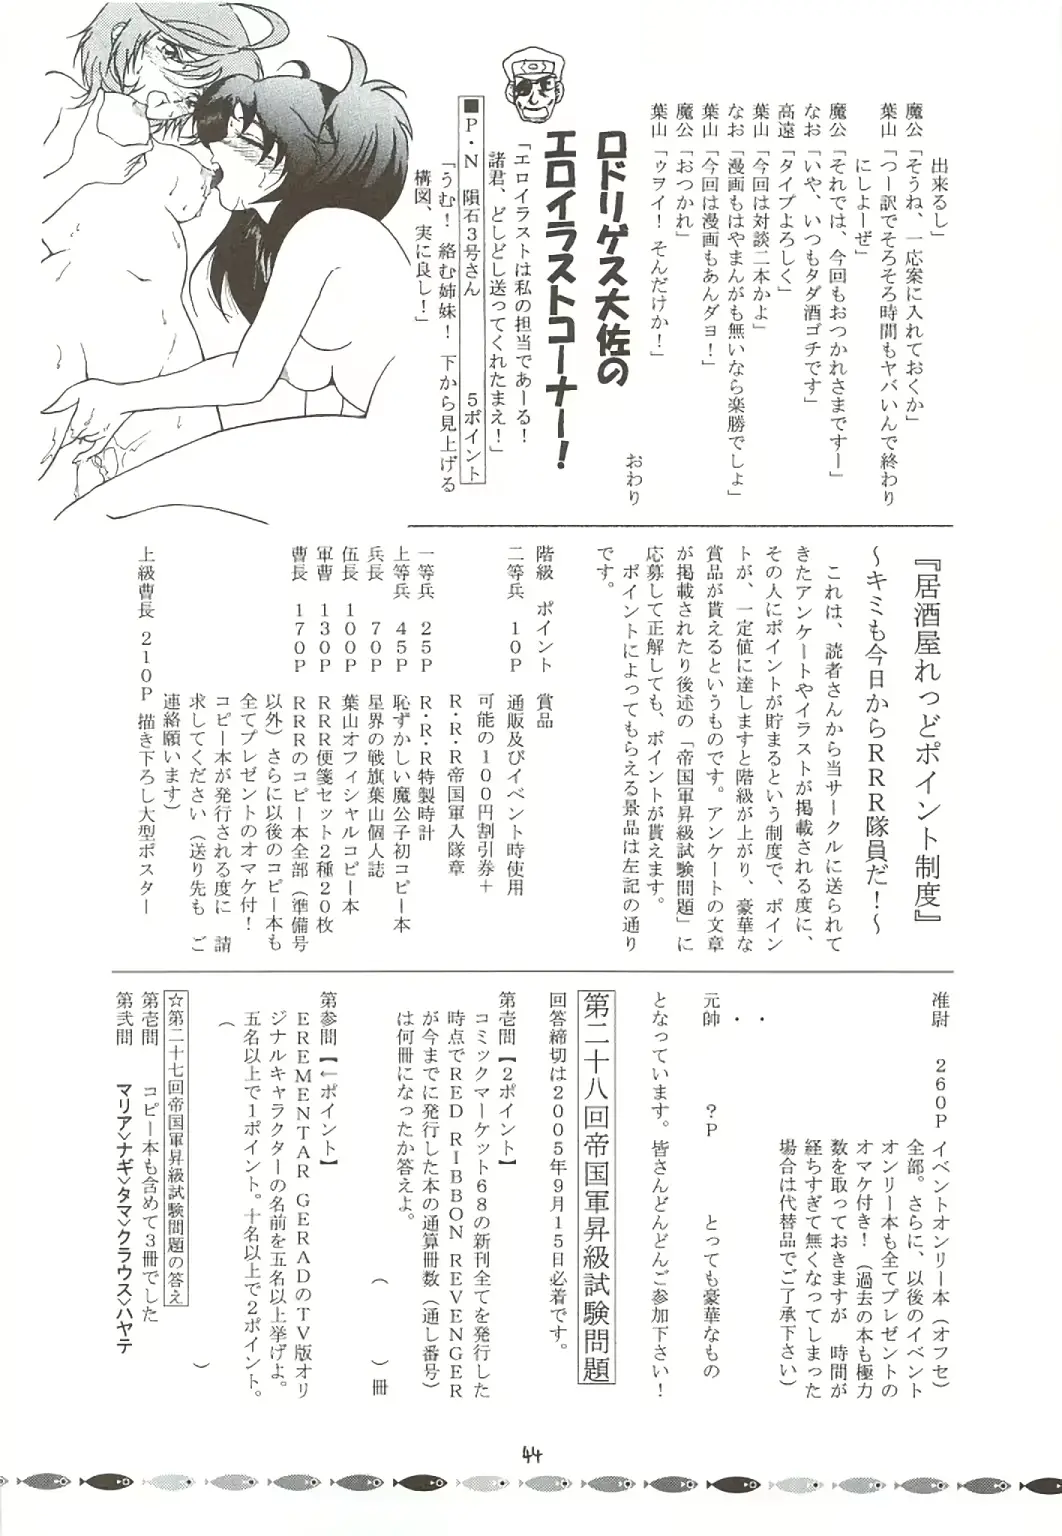 出来るし」
魔公「そうね、一応案に入れておくか」
葉山「つー訳でそろそろ時間もヤバいんで終わり
にしよーぜ」
魔公「それでは、今回もおつかれさまですー」
なお「いや、いつもタダ酒ゴチです」
高遠「タイプよろしく」
葉山「今回は対談二本かよ」
なお「漫画もはやまんがも無いなら楽勝でしょ」
葉山「今回は漫画もあんダョ！」
魔公「おつかれ」
葉山「ゥヲイ！そんだけか！」
おわり
ロドリゲス大佐の
エロイラストコーナー！
「エロイラストは私の担当であーる！
諸君、どしどし送ってくれたまえ！」
■Ｐ・Ｎ　隕石３号さん　５ポイント
「うむ！絡む姉妹！下から見上げる
構図、実に良し！」
『居酒屋れっどポイント制度』
～キミも今日からＲＲＲ隊員だ！～
これは、読者さんから当サークルに送られて
きたアンケートやイラストが掲載される度に、
その人にポイントが貯まるという制度で、ポイン
トが、一定値に達しますと階級が上がり、豪華な
賞品が貰えるというものです。アンケートの文章
が掲載されたり後述の「帝国軍昇級試験問題」に
応募して正解しても、ポイントが貰えます。
ポイントによってもらえる景品は左記の通り
です。
階級　ポイント　賞品
二等兵　１０Ｐ　通販及びイベント時使用
可能の１００円割引券＋
Ｒ・Ｒ・Ｒ帝国軍入隊章
一等兵　２５Ｐ　Ｒ・Ｒ・Ｒ特製時計
上等兵　４５Ｐ　恥ずかしい魔公子初コピー本
兵長　７０Ｐ　星界の戦旗葉山個人誌
伍長　１００Ｐ　葉山オフィシャルコピー本
軍曹　１３０Ｐ　ＲＲＲ便箋セット２種２０枚
曹長　１７０Ｐ　ＲＲＲのコピー本全部（準備号
以外）さらに以後のコピー本も
全てプレゼントのオマケ付！
コピー本が発行される度に　請
求してください（送り先も　ご
連絡願います）
上級曹長　２１０Ｐ　描き下ろし大型ポスター
准尉　２６０Ｐ　イベントオンリー本（オフセ）
全部。さらに、以後のイベント
オンリー本も全てプレゼントの
オマケ付き！（過去の本も極力
数を取っておきますが　時間が
経ちすぎて無くなってしまった
場合は代替品でご了承下さい）
・
・
元帥　？Ｐ　とっても豪華なもの
となっています。皆さんどんどんご参加下さい！
第二十八回帝国軍昇級試験問題
回答締切は２００５年９月１５日必着です。
第壱問【２ポイント】
コミックマーケット６８の新刊全てを発行した
時点でＲＥＤ　ＲＩＢＢＯＮ　ＲＥＶＥＮＧＥＲ
が今までに発行した本の通算冊数（通し番号）
は何冊になったか答えよ。
（　　）冊
第参問【←ポイント】
ＥＲＥＭＥＮＴＡＲ　ＧＥＲＡＤのＴＶ版オリ
ジナルキャラクターの名前を五名以上挙げよ。
五名以上で１ポイント。十名以上で２ポイント。
（　　）
☆第二十七回帝国軍昇級試験問題の答え
第壱問　コピー本も含めて３冊でした
第弐問　マリア＞ナギ＞タマ＞クラウス＞ハヤテ
44